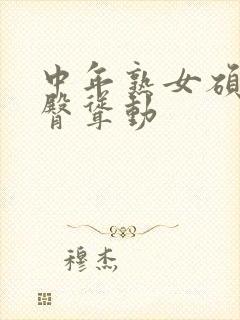 中年熟女硕
臀耸动
穆杰